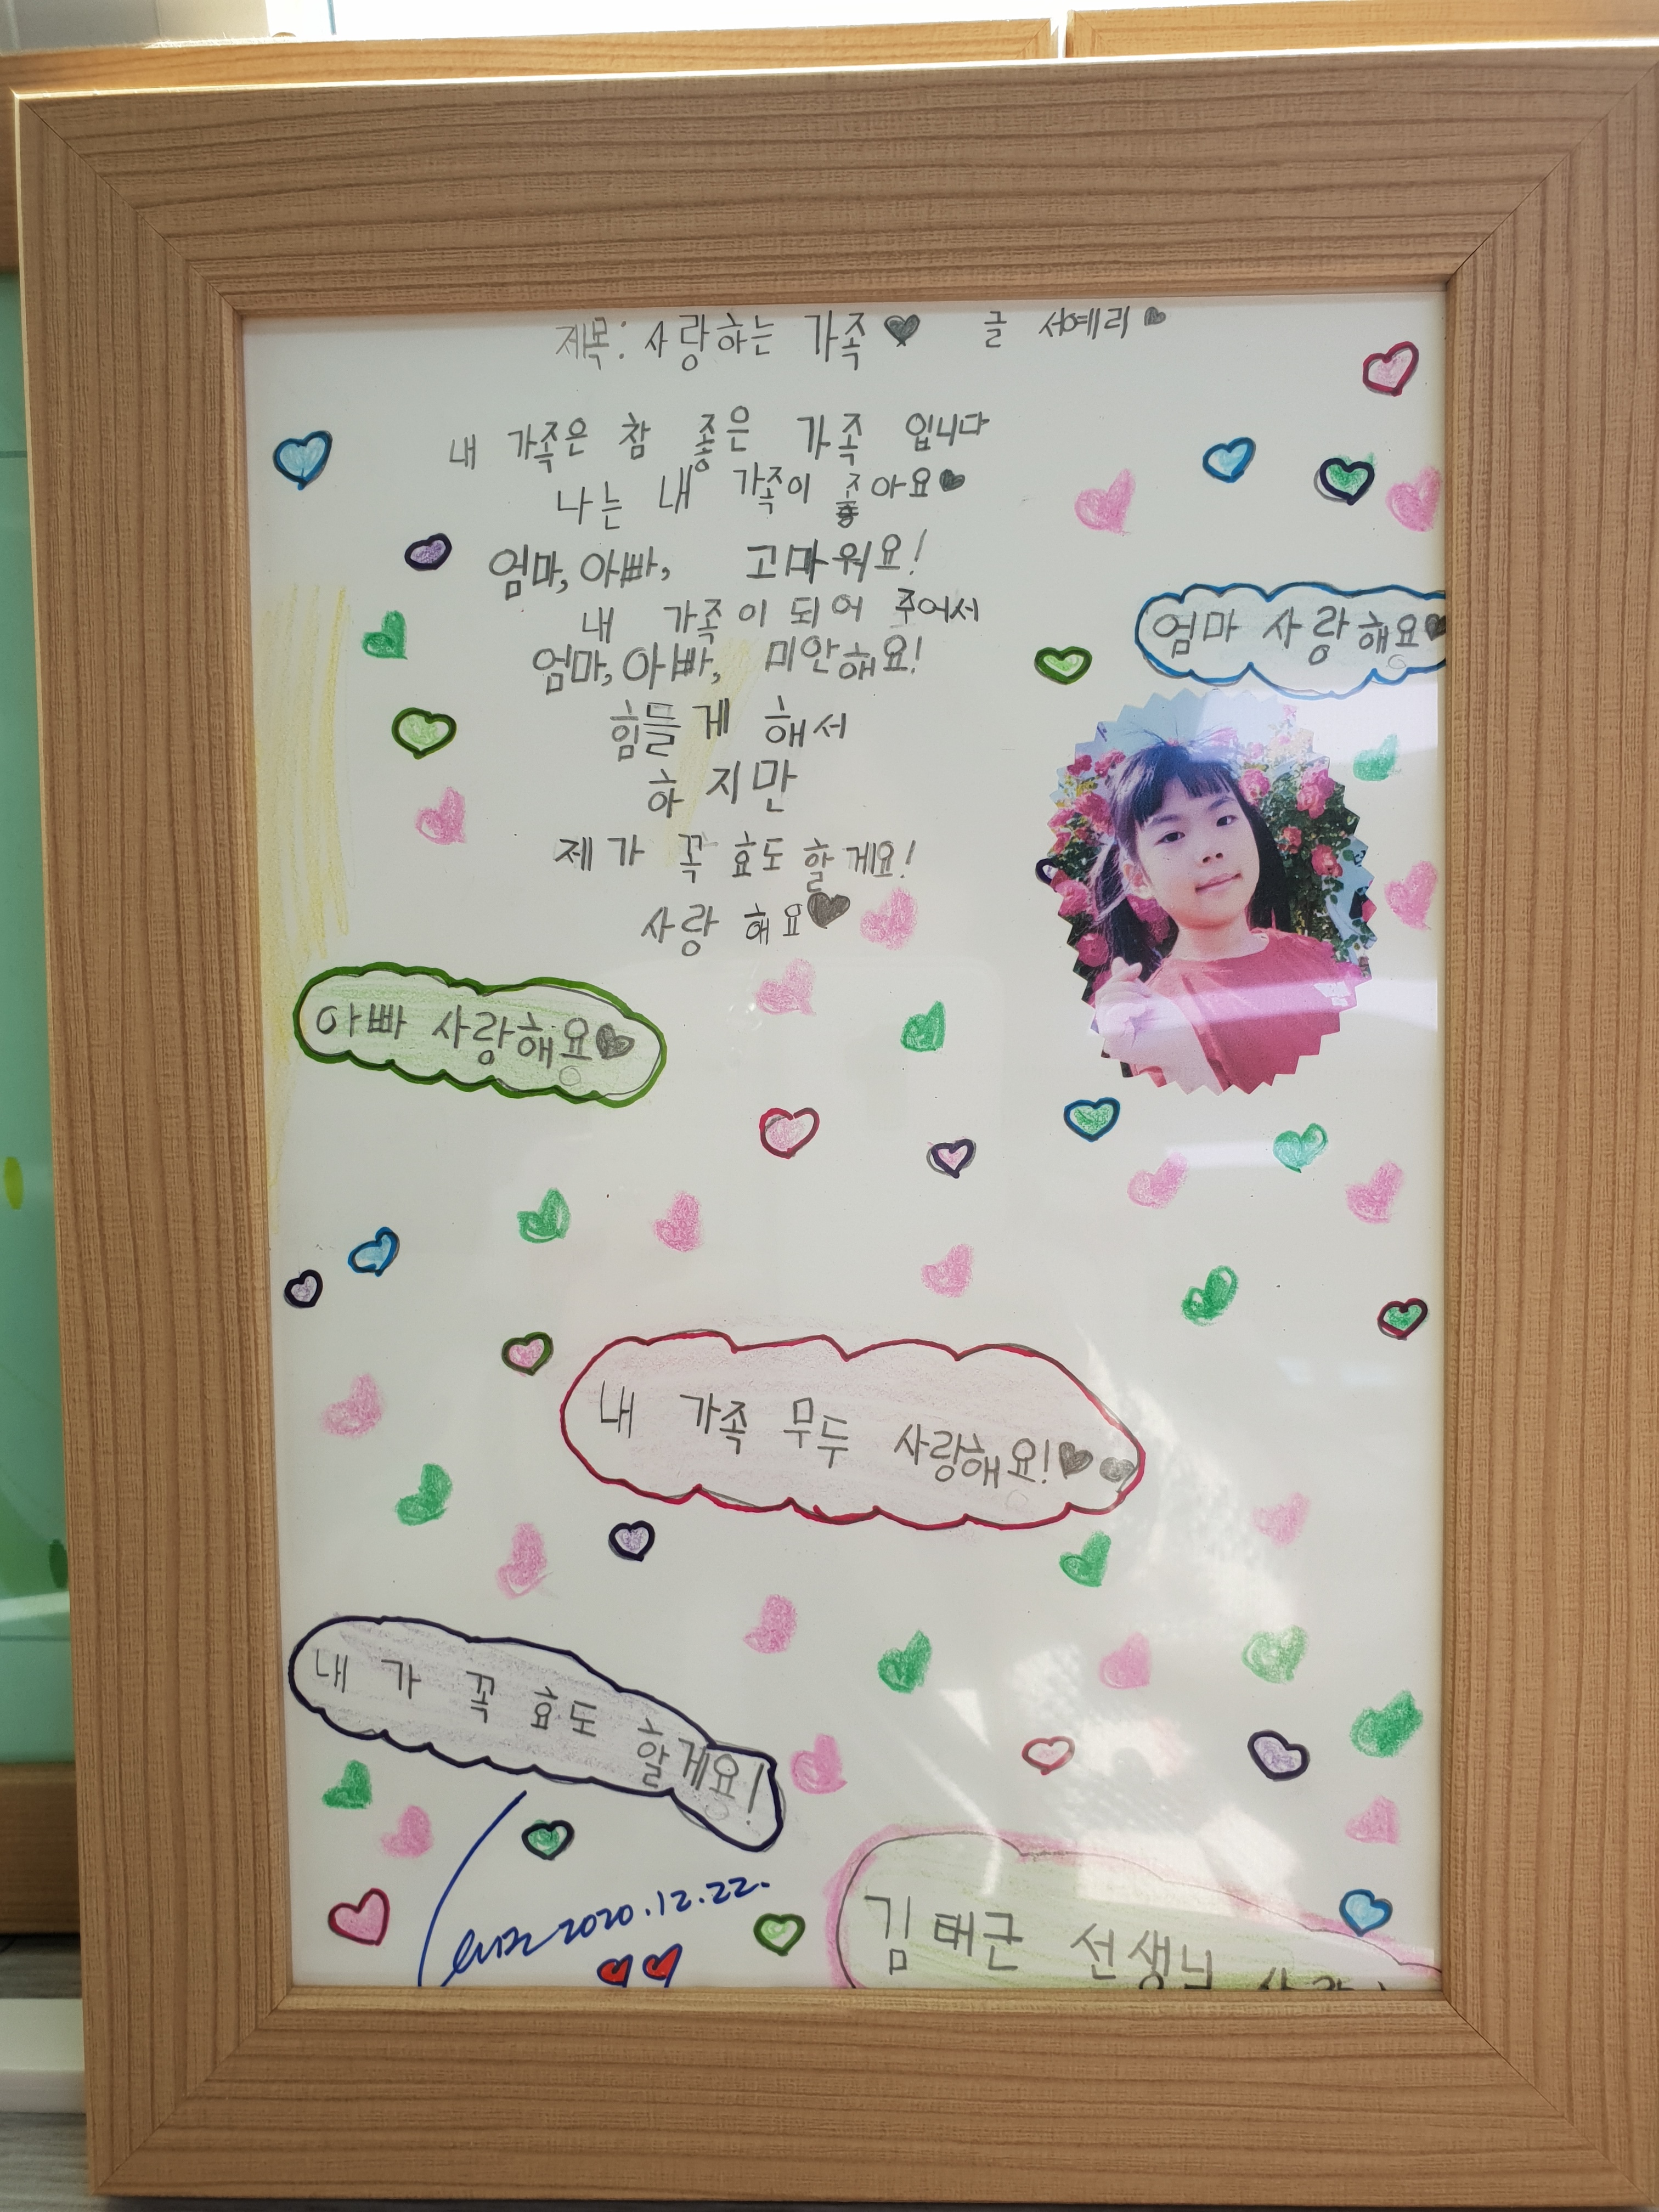 제목: 사랑하는 가족♥ 글 서예리♥
내 가족은 참 좋은 가족 입니다
나는 내 가족이 좋아요♥
엄마, 아빠, 고마워요!
내 가족이 되어 주어서
엄마, 아빠, 미안해요!
힘들게 해서
하지만
제가 꼭 효도 할게요!
사랑 해요♥
엄마 사랑해요♥
아빠 사랑해요♥
내 가족 무두 사랑해요!♥♥
내가 꼭 효도 할게요!
2020.12.22.
김태근 선생님